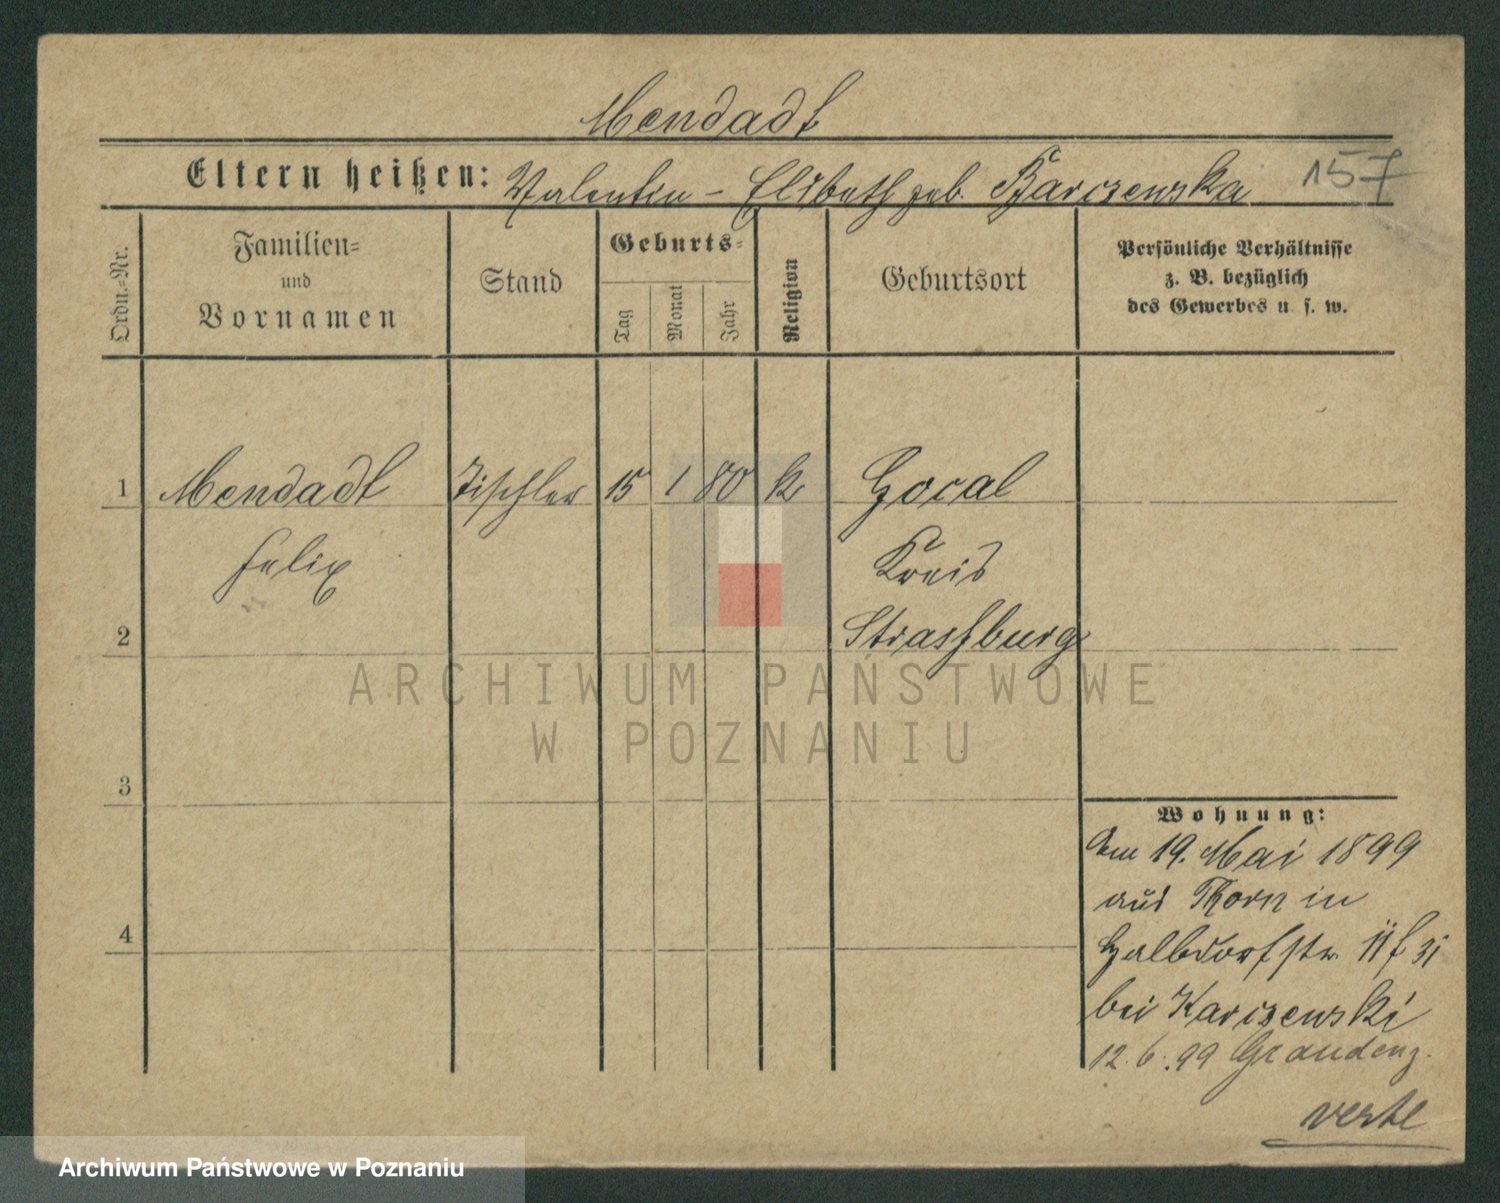 Mendadt
Eltern heißen: Valentin - Elsbeth geb. Karczewska 157
Ordn.-Nr.
Familien-
und
Vornamen
Stand
Geburts-
Tag
Monat
Jahr
Religion
Geburtsort
Persönliche Verhältnisse
z. B. bezüglich
des Gewerbes u. s. w.
1 Mendadt Tischler 15 1 80 k Gocal
Felix Kreis
2 Strassburg
3
4
Wohnung:
Am 19. Mai 1899
aus Thorn in
Halbdorfstr.
bei Karczewski
12.6.99 Graudenz.
verte
ARCHIWUM PAŃSTWOWE
W POZNANIU
Archiwum Państwowe w Poznaniu